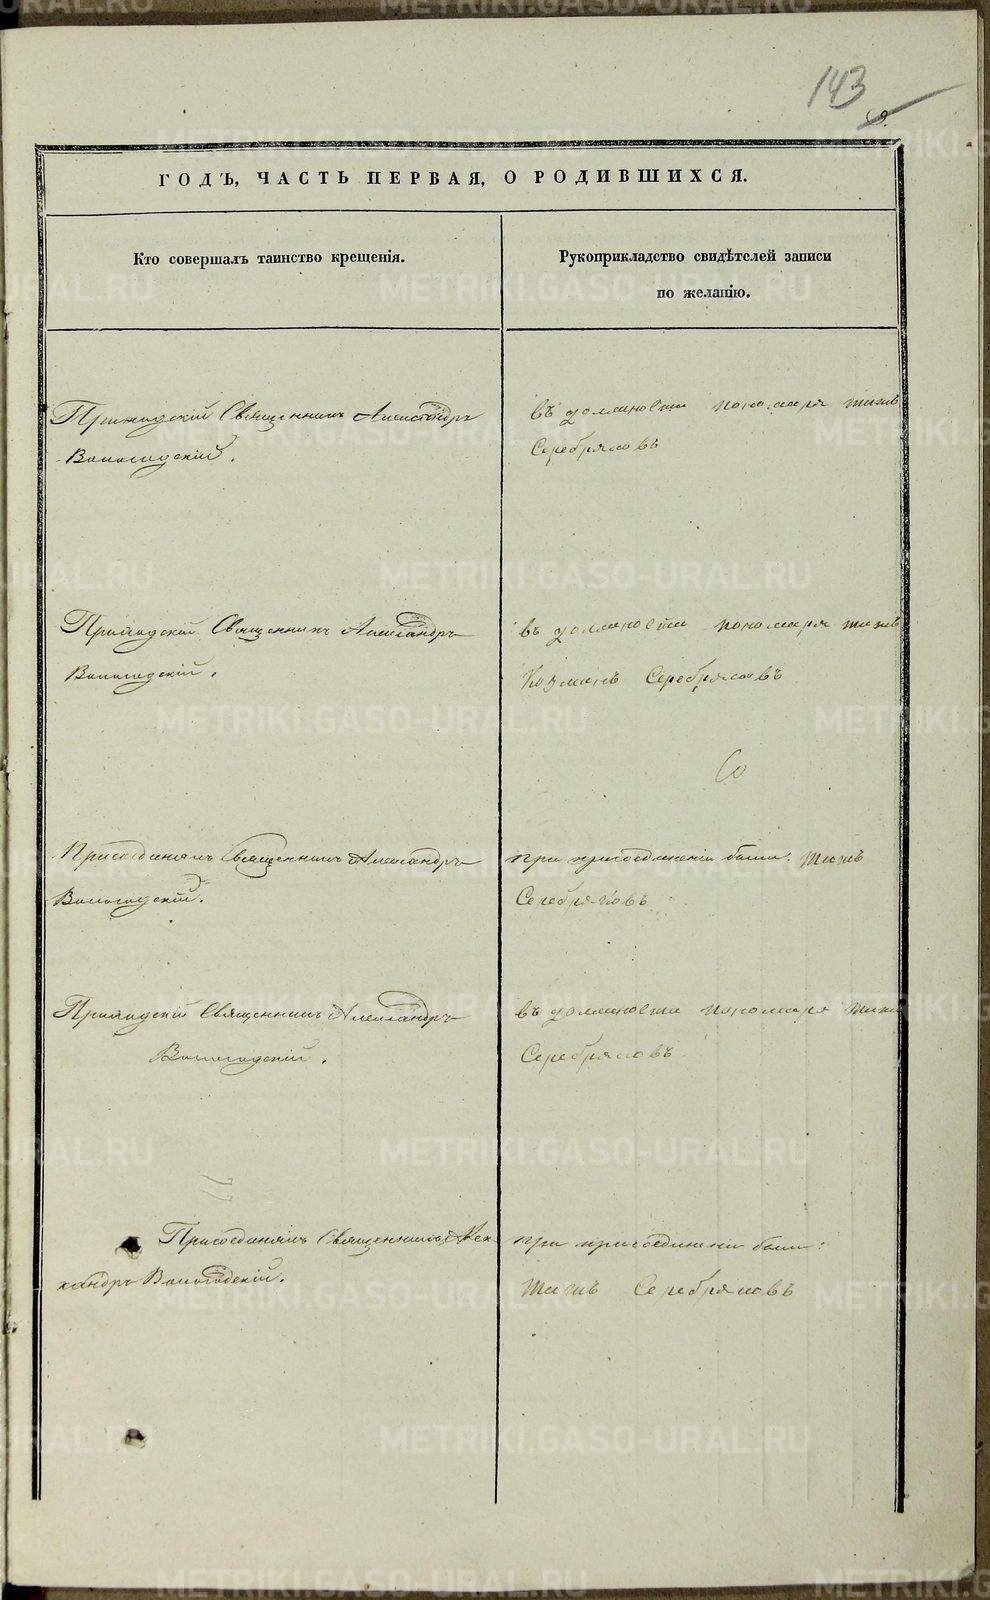 143
ГОДЪ, ЧАСТЬ ПЕРВАЯ, О РОДИВШИХСЯ.
Кто совершалъ таинство крещенія.
Рукоприкладство свидѣтелей записи
по желанію.
Приходскій Священникъ Александръ
Вологодскій.
въ должности пономаря Тихъ
Серебряковъ
Приходскій Священникъ Александръ
Вологодскій.
въ должности пономаря
Серебряковъ
Присоединялъ Священникъ Александръ
Вологодскій.
при присоединеніи былъ:
Серебряковъ
Приходскій Священникъ Александръ
Вологодскій.
въ должности пономаря
Серебряковъ
Присоединялъ Священникъ Алек-
сандръ Вологодскій.
при присоединеніи былъ:
Серебряковъ
METRIKI.GASO-URAL.RU